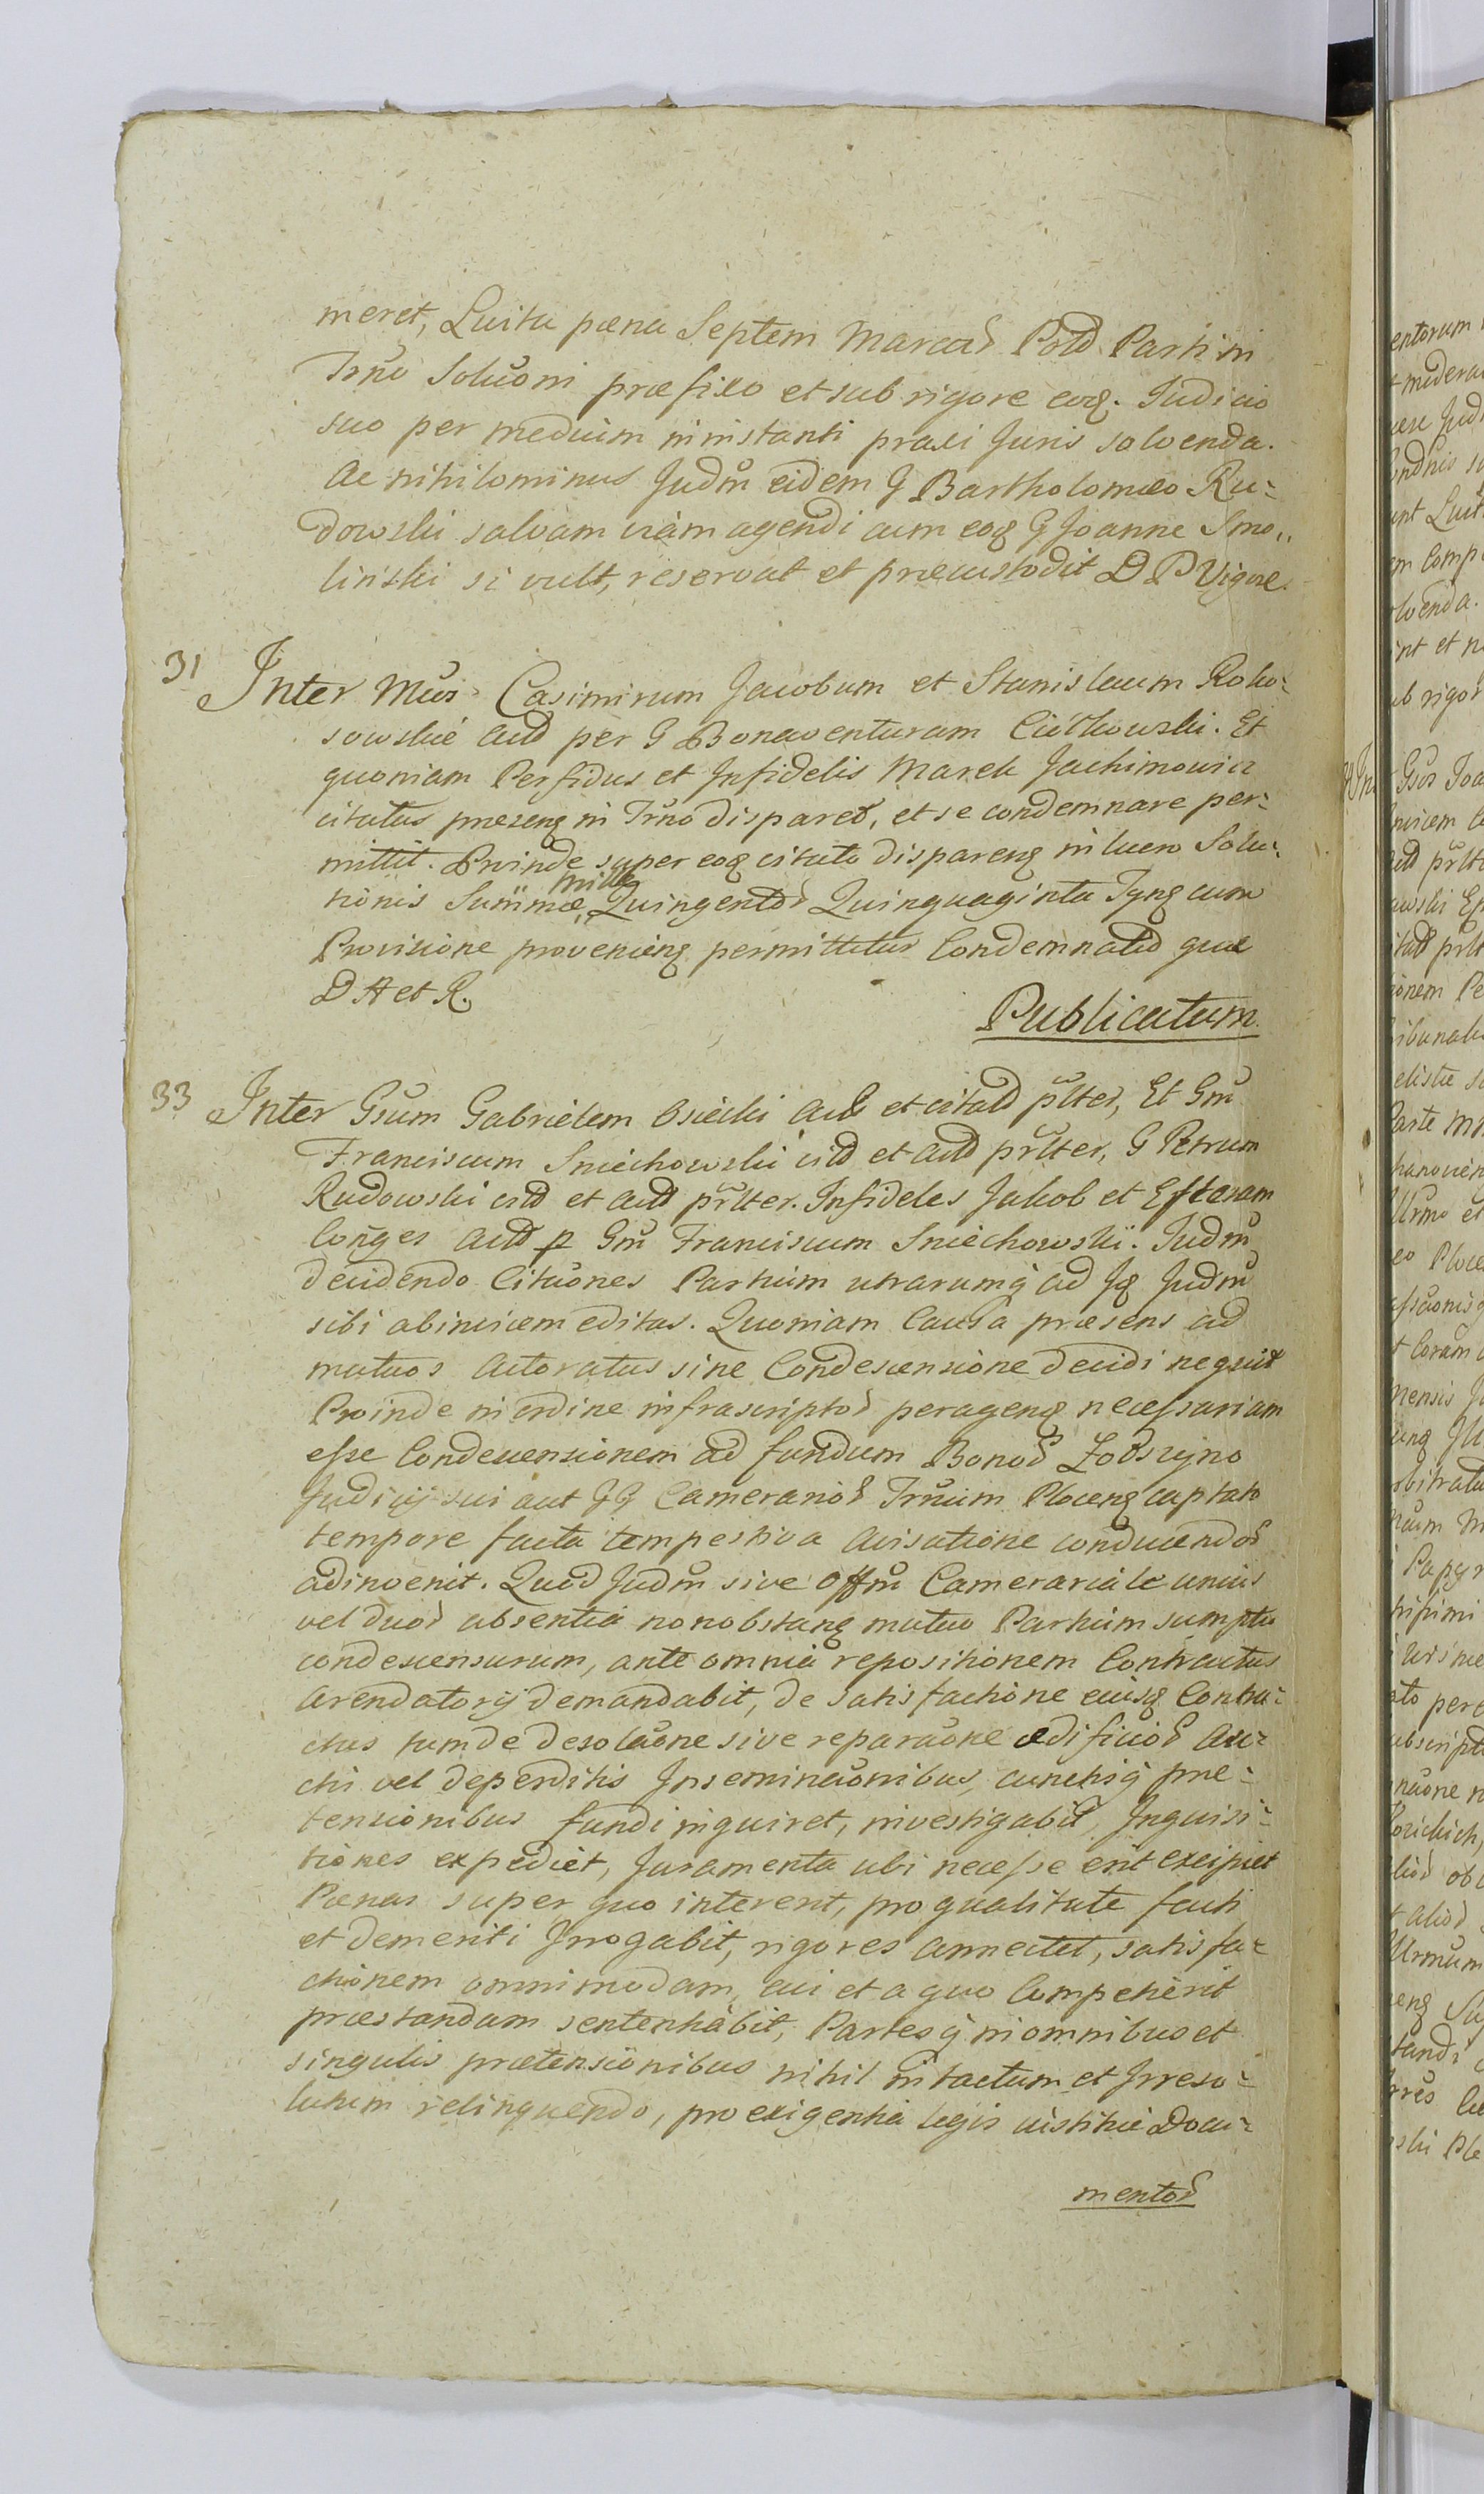 meret, Luita pæna Septem Marcar Pold Parti in
Trno Soluōni præfixo et sub rigore eoq. Judicio
suo per medium in instanti praxi Juris solvenda.
Ac nihilominus Judm eidem G Bartholomæo Ru-
dowski salvam viam agendi cum eoq G Joanne Smo-
linski si vult, reservat et præcustodit D P Vigore.
31 Inter Mūos Casimirum Jacobum et Stanislaum Roko-
sowskie Actd per G Bonaventuram Ciółkowski. Et
quoniam Perfidus et Infidelis Marek Jachimowicz
citatus præsenq in Trno disparet, et se condemnare per-
mittit. Proinde super eoq citato disparenq in lucro Solu-
tionis Summæ, Mille Quingentor Quinquaginta Tynq cum
Provisione provenienq permittitur Condemnatio quæ
D A et R.
Publicatum.
33 Inter Gsum Gabrielem Osiecki Act et citatd prlter, Et Gm
Franciscum Sniechowski citd et actd prlter, G Petrum
Rudowski citd et actd prlter. Infideles Jakob et Esteram
Conges Actd p Gm Franciscum Sniechowski. Judm
decidendo Cituones Partium utrarumq ad Jq Judm
sibi abinvicem editas. Quoniam Causa præsens ad
mutuos Actoratus sine Condescensione decidi nequit
Proinde in ordine infrascriptor peragenq necessariam
esse Condescensionem ad fundum Bonor Zobszyno
Judicij sui aut GG Camerarior Trruum Plocenq captato
tempore facta tempestiva Avisatione conducendor
adinvenit. Quod Judm sive Offm Camerariale unius
vel duor absentia nonobstanq mutuo Partium sumptu
condescensurum, ante omnia repositionem Contractus
Arendatorij demandabit, de satisfactione ejusq Contra-
ctus tum de desolaone sive reparaone ædificior Au-
cti vel deperditis Inseminaonibus, cunctisq præ-
tensionibus fundi inquiret, investigabit, Inquisi-
tiones expediet, Juramenta ubi necesse erit excipiet
Pænas super quo intererit, pro qualitate facti
et demeriti Irrogabit, rigores annectet, satisfa-
ctionem omnimodam, cui et a quo Competierit
præstandam sententiabit, Partesq in omnibus et
singulis prætensionibus nihil intactum et Irreso-
lutum relinquendo, pro exigentia legis iustitiæ Docu-
mentor